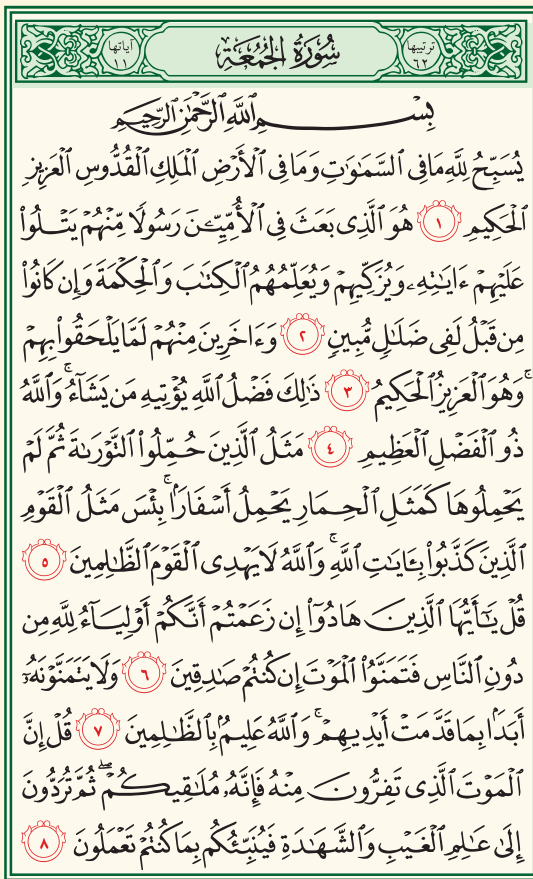 ترتيبها ٦٢
سُورَةُ الجُمُعَةِ
آياتها ١١
بِسْمِ اللَّهِ الرَّحْمَٰنِ الرَّحِيمِ
يُسَبِّحُ لِلَّهِ مَا فِي السَّمَٰوَٰتِ وَمَا فِي الْأَرْضِ الْمَلِكِ الْقُدُّوسِ الْعَزِيزِ
الْحَكِيمِ ١ هُوَ الَّذِي بَعَثَ فِي الْأُمِّيِّـۧنَ رَسُولًا مِّنْهُمْ يَتْلُوا۟
عَلَيْهِمْ ءَايَٰتِهِۦ وَيُزَكِّيهِمْ وَيُعَلِّمُهُمُ الْكِتَٰبَ وَالْحِكْمَةَ وَإِن كَانُوا۟
مِن قَبْلُ لَفِي ضَلَٰلٍ مُّبِينٍ ٢ وَءَاخَرِينَ مِنْهُمْ لَمَّا يَلْحَقُوا۟ بِهِمْ
ۚ وَهُوَ الْعَزِيزُ الْحَكِيمُ ٣ ذَٰلِكَ فَضْلُ اللَّهِ يُؤْتِيهِ مَن يَشَآءُ ۚ وَاللَّهُ
ذُو الْفَضْلِ الْعَظِيمِ ٤ مَثَلُ الَّذِينَ حُمِّلُوا۟ التَّوْرَىٰةَ ثُمَّ لَمْ
يَحْمِلُوهَا كَمَثَلِ الْحِمَارِ يَحْمِلُ أَسْفَارًۢا ۚ بِئْسَ مَثَلُ الْقَوْمِ
الَّذِينَ كَذَّبُوا۟ بِـَٔايَٰتِ اللَّهِ ۚ وَاللَّهُ لَا يَهْدِي الْقَوْمَ الظَّٰلِمِينَ ٥
قُلْ يَٰٓأَيُّهَا الَّذِينَ هَادُوٓا۟ إِن زَعَمْتُمْ أَنَّكُمْ أَوْلِيَآءُ لِلَّهِ مِن
دُونِ النَّاسِ فَتَمَنَّوُا۟ الْمَوْتَ إِن كُنتُمْ صَٰدِقِينَ ٦ وَلَا يَتَمَنَّوْنَهُۥٓ
أَبَدًۢا بِمَا قَدَّمَتْ أَيْدِيهِمْ ۚ وَاللَّهُ عَلِيمٌۢ بِالظَّٰلِمِينَ ٧ قُلْ إِنَّ
الْمَوْتَ الَّذِي تَفِرُّونَ مِنْهُ فَإِنَّهُۥ مُلَٰقِيكُمْ ۖ ثُمَّ تُرَدُّونَ
إِلَىٰ عَٰلِمِ الْغَيْبِ وَالشَّهَٰدَةِ فَيُنَبِّئُكُم بِمَا كُنتُمْ تَعْمَلُونَ ٨